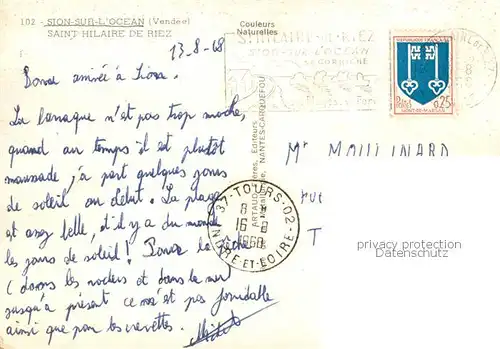 102 - SION-SUR-L'OCEAN (Vendée)
SAINT HILAIRE DE RIEZ
Couleurs
Naturelles
13-8-68
Bonne arrivée à Sion.
La baraque n'est pas trop moche,
quand au temps il est plutôt
maussade, à part quelques jours
de soleil au début. La plage
est assez belle, et il y a du monde
les jours de soleil ! Pour la pêche
(dans les rochers et dans la mer)
jusqu'à présent ce n'est pas formidable
ainsi que pour les crevettes.
ST HILAIRE-DE-RIEZ
SION-SUR-L'OCEAN
LA CORNICHE
REPUBLIQUE FRANCAISE
POSTES
0,25
MONT-DE-MARSAN
Editeurs
NANTES-CARQUEFOU
37-TOURS-02
16-8
1968
INDRE-ET-LOIRE
Mr MOULINARD
rue
T
privacy protection
watermark